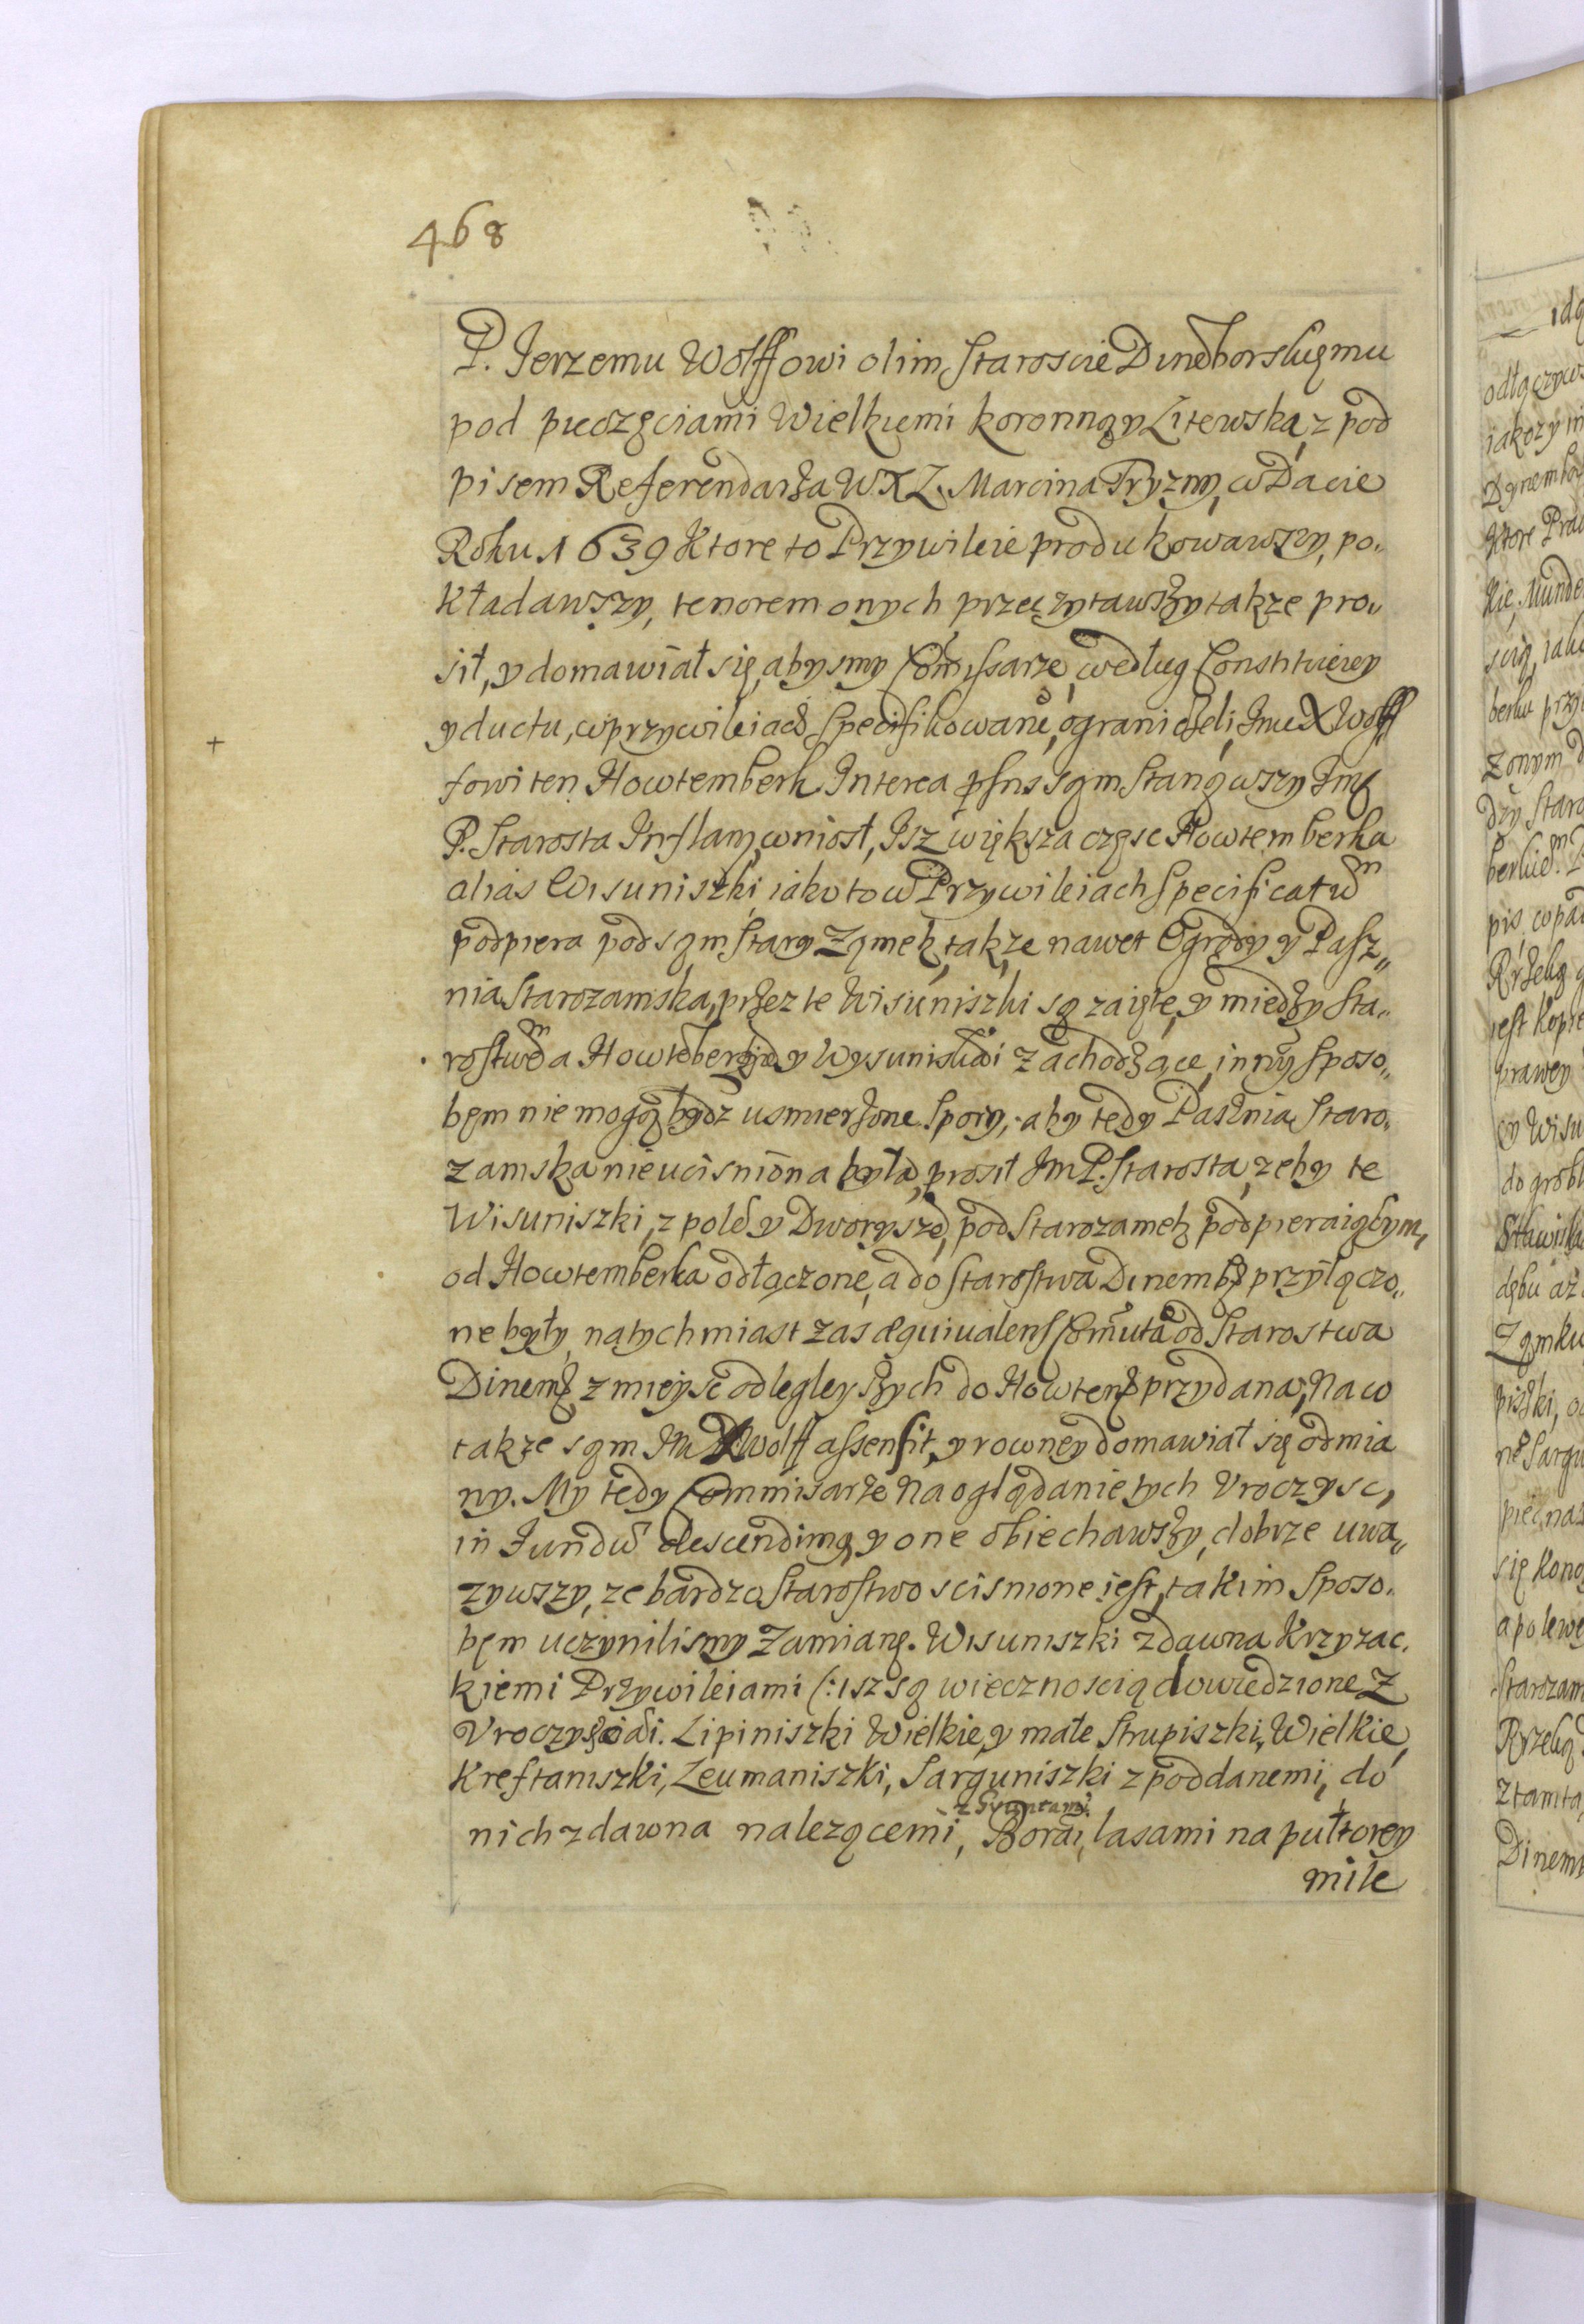 468
P. Jerzemu Wolffowi olim Staroscie Dineborskiemu
pod pieczęciami Wielkiemi koronną y Litewską, z pod
pisem Referendarza W X L. Marcina Tryzny, w Dacie
Roku 1639 Ktore to Przywileie produkowawszy, po
kładawszy, tenorem onych przeczytawszy takze pro
sił, y domawiał się, abysmy Com̃issarze, według Constituciey
y ductu, w przywileiach specifikowane, ograniczeli, Jmć X Wolf
fowi ten Howtemberk Interea pſns sąm Stanąwszy Jmć
P. Starosta Inflany, wniosł, Isz większa częsc Howtemberka
alias Wisuniszki, iako to w Przywileiach specificatũ
podpiera pod sąm Stary Zamek, takze nawet Ogrody y Pasz„
nia Starozamska, przez te Wisuniszki są zaięte, y miedzy Sta„
rostwem a y Wysunisżkami zachodzące, inszy sposo„
bęm nie mogą bydz usmierzone spory, aby tedy Pasznia Staro„
zamska nie ucisniona była, prosił Jm P. Starosta, zeby te
Wisuniszki, z polem y Dworyszczem, pod Starozamek podpieraiącym,
od Howtemberka odłączone, a do Starostwa Dinemb przyłączo„
ne były, natychmiast zas æquiualens Com̃uta od Starostwa
Dinemb z mieysc odlegleyszych do Howtemb przydana, Na co
takze sąm Jm X Wolff assensit, y rowney domawiał się odmia
ny. My tedy Commisarze Na oglądanie tych Vroczysc,
in Fundũ descendimꝯ, y one obiechawszy, dobrze uwa„
zywszy, ze bardzo Starostwo scisnione iest, takim sposo„
bęm uczynilismy Zamianę. Wisuniszki zdawna Krzyzac„
kiemi Przywileiami (: isz są wiecznoscią dowiedzione Z
Vroczysciami. Lipiniszki Wielkie, y małe Strupiszki, Wielkie,
Kreftaniszki, Leumaniszki, Sarguniszki z poddanemi, do
z Gruntami
nich zdawna nalezącemi, Borami, lasami na pułtorey
mile